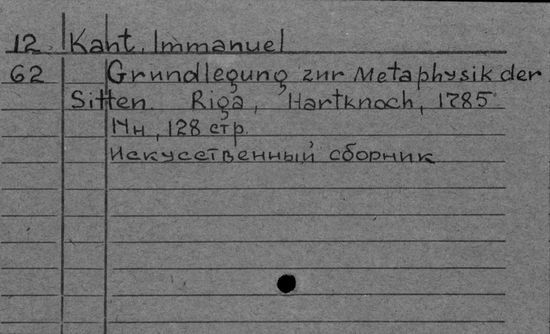 12 Kant, Immanuel
62 Grundlegung zur Metaphysik der
Sitten. Riga, Hartknoch, 1785
14н, 128 стр.
Искусственный сборник